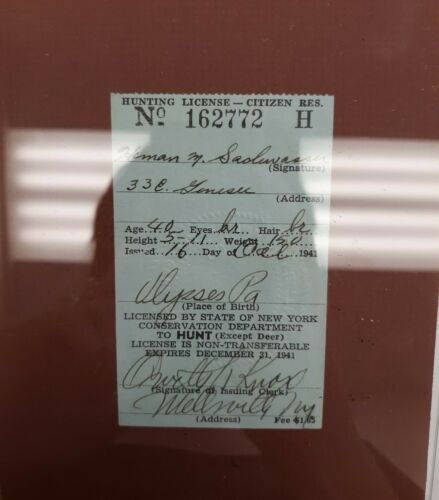 HUNTING LICENSE — CITIZEN RES.
Nº 162772 H
(Signature)
33 E. Genesee
(Address)
Age 40 Eyes br Hair br
Height 5-11 Weight 150
Issued 16 Day of Oct 1941
Ulysses Pa
(Place of Birth)
LICENSED BY STATE OF NEW YORK
CONSERVATION DEPARTMENT
TO HUNT (Except Deer)
LICENSE IS NON-TRANSFERABLE
EXPIRES DECEMBER 31, 1941
Knox
(Signature of Issuing Clerk)
Wellsville, Ny
(Address) Fee $1.65